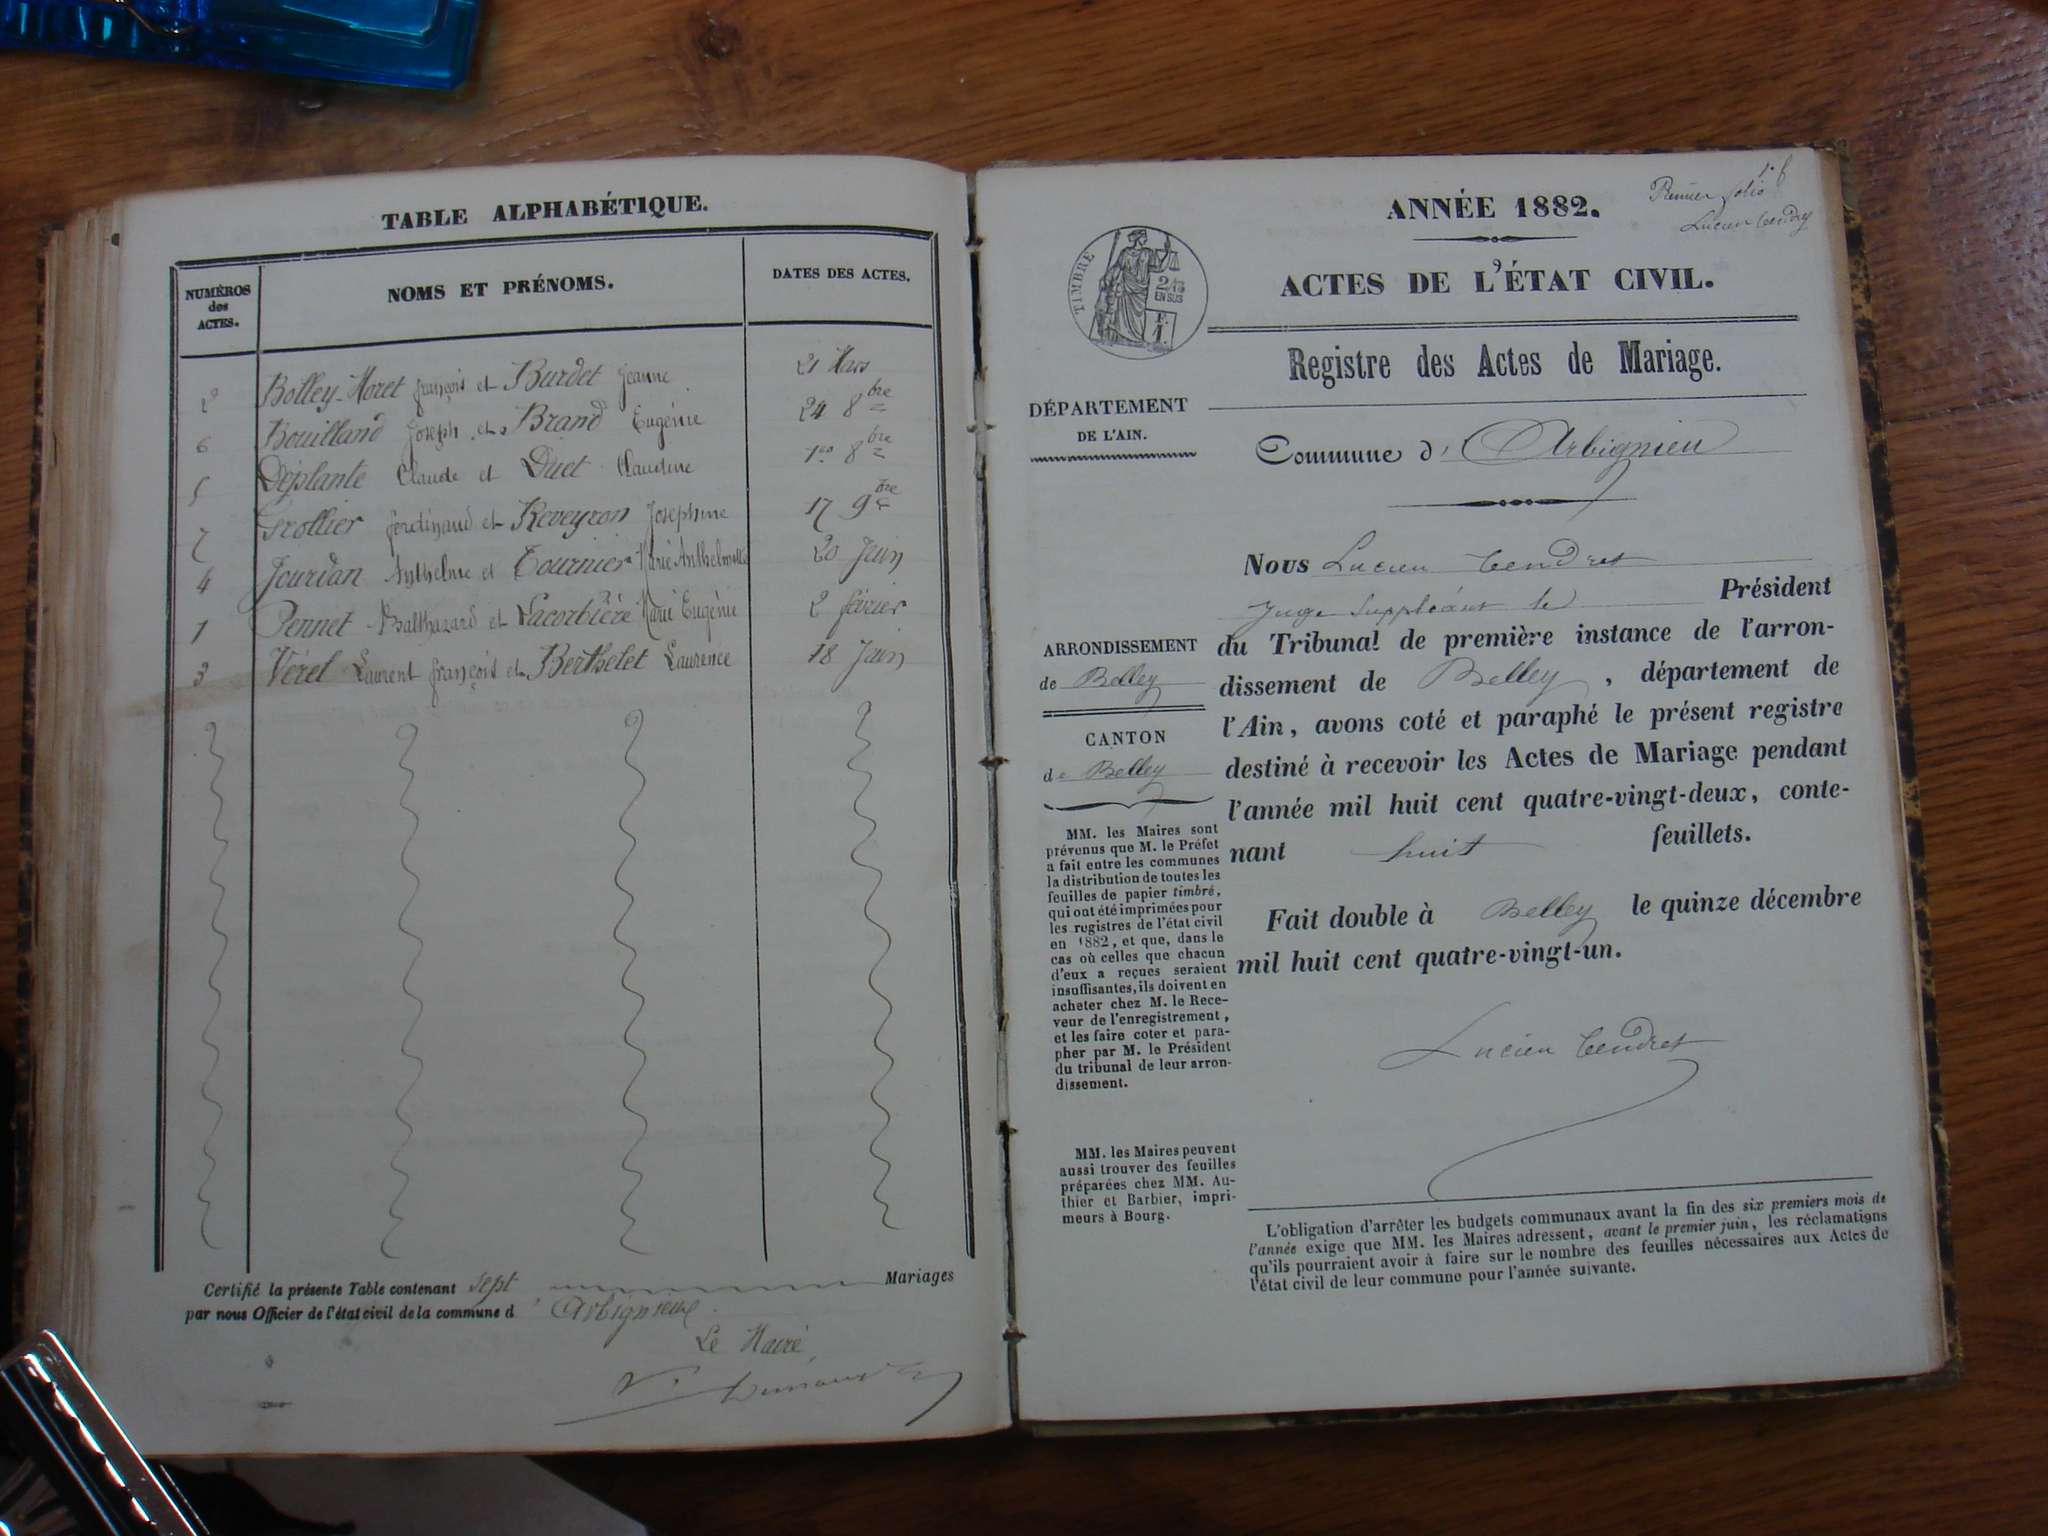 TABLE ALPHABÉTIQUE.
NUMÉROS
des
ACTES.
NOMS ET PRÉNOMS.
DATES DES ACTES.
2 Bolley-Moret françois et Burdet Jeanne 21 Mars
6 Bouilland Joseph et Brand Eugénie 24 8bre
5 Déplante Claude et Duet Claudine 1er 8bre
7 Grollier ferdinand et Reveyron Josephine 17 9bre
4 Jourdan Anthelme et Tournier Marie Anthelmette 20 Juin
1 Pennet Balthazard et Lacorbière Marie Eugénie 2 février
3 Vérel Laurent françois et Berthelet Laurence 18 Juin
Certifié la présente Table contenant sept Mariages
par nous Officier de l'état civil de la commune d'Arbignieu
Le Maire
1er f
Premier folio
Lucien Tendret
ANNÉE 1882.
TIMBRE
2/10
EN SUS
F.
1.
ACTES DE L'ÉTAT CIVIL.
Registre des Actes de Mariage.
DÉPARTEMENT
DE L'AIN.
Commune d'Arbignieu
Nous Lucien Tendret
Juge Suppléant le Président
du Tribunal de première instance de l'arron-
dissement de Belley, département de
l'Ain, avons coté et paraphé le présent registre
destiné à recevoir les Actes de Mariage pendant
l'année mil huit cent quatre-vingt-deux, conte-
nant huit feuillets.
Fait double à Belley le quinze décembre
mil huit cent quatre-vingt-un.
Lucien Tendret
ARRONDISSEMENT
de Belley
CANTON
de Belley
MM. les Maires sont
prévenus que M. le Préfet
a fait entre les communes
la distribution de toutes les
feuilles de papier timbré,
qui ont été imprimées pour
les registres de l'état civil
en 1882, et que, dans le
cas où celles que chacun
d'eux a reçues seraient
insuffisantes, ils doivent en
acheter chez M. le Rece-
veur de l'enregistrement,
et les faire coter et para-
pher par M. le Président
du tribunal de leur arron-
dissement.
MM. les Maires peuvent
aussi trouver des feuilles
préparées chez MM. Au-
thier et Barbier, impri-
meurs à Bourg.
L'obligation d'arrêter les budgets communaux avant la fin des six premiers mois de
l'année exige que MM. les Maires adressent, avant le premier juin, les réclamations
qu'ils pourraient avoir à faire sur le nombre des feuilles nécessaires aux Actes de
l'état civil de leur commune pour l'année suivante.